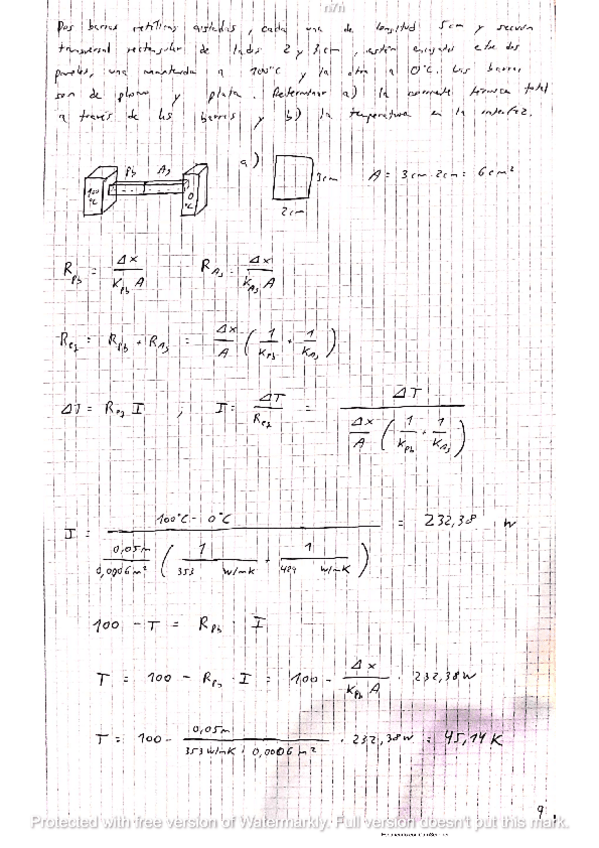 Dos barras metálicas aisladas, cada una de longitud 5cm y sección
transversal rectangular de lados 2 y 3cm, están encajadas entre dos
paredes, una mantenida a 100°C y la otra a 0°C. Las barras
son de plomo y plata. Determinar a) la corriente térmica total
a través de las barras y b) la temperatura en la interfaz.
Pb Ag
100 °C
0 °C
a)
3cm
2cm
A = 3cm · 2cm = 6cm²
R_Pb = Δx / K_Pb A R_Ag = Δx / K_Ag A
R_eq = R_Pb + R_Ag = Δx/A (1/K_Pb + 1/K_Ag)
ΔT = R_eq I ; I = ΔT/R_eq = ΔT / (Δx/A (1/K_Pb + 1/K_Ag))
I = (100°C - 0°C) / (0,05m/0,0006m² (1/353 W/mK + 1/429 W/mK)) = 232,38 W
100 - T = R_Pb · I
T = 100 - R_Pb · I = 100 - Δx/(K_Pb A) · 232,38W
T = 100 - 0,05m/(353W/mK · 0,0006m²) · 232,38W = 45,14 K
9.
Protected with free version of Watermarkly. Full version doesn't put this mark.